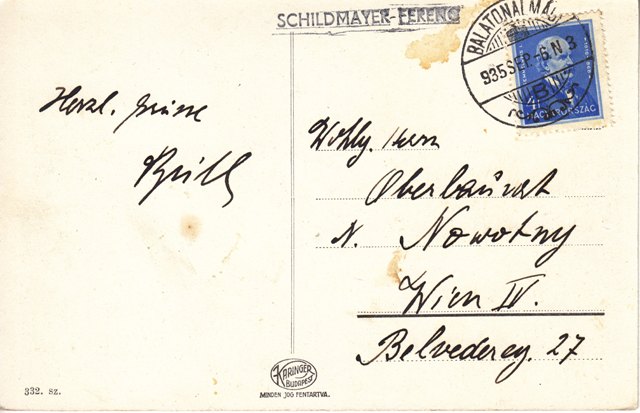 SCHILDMAYER-FERENC
BALATONALMÁDI
935 SEP.-6.N 8
B
MAGYARORSZÁG
Herzl. Grüsse
Wohlg. Herrn
Oberbaurat
N. Nowotny
Wien IV.
Belvedereg. 27
KARINGER
BUDAPEST
MINDEN JOG FENTARTVA.
332. sz.